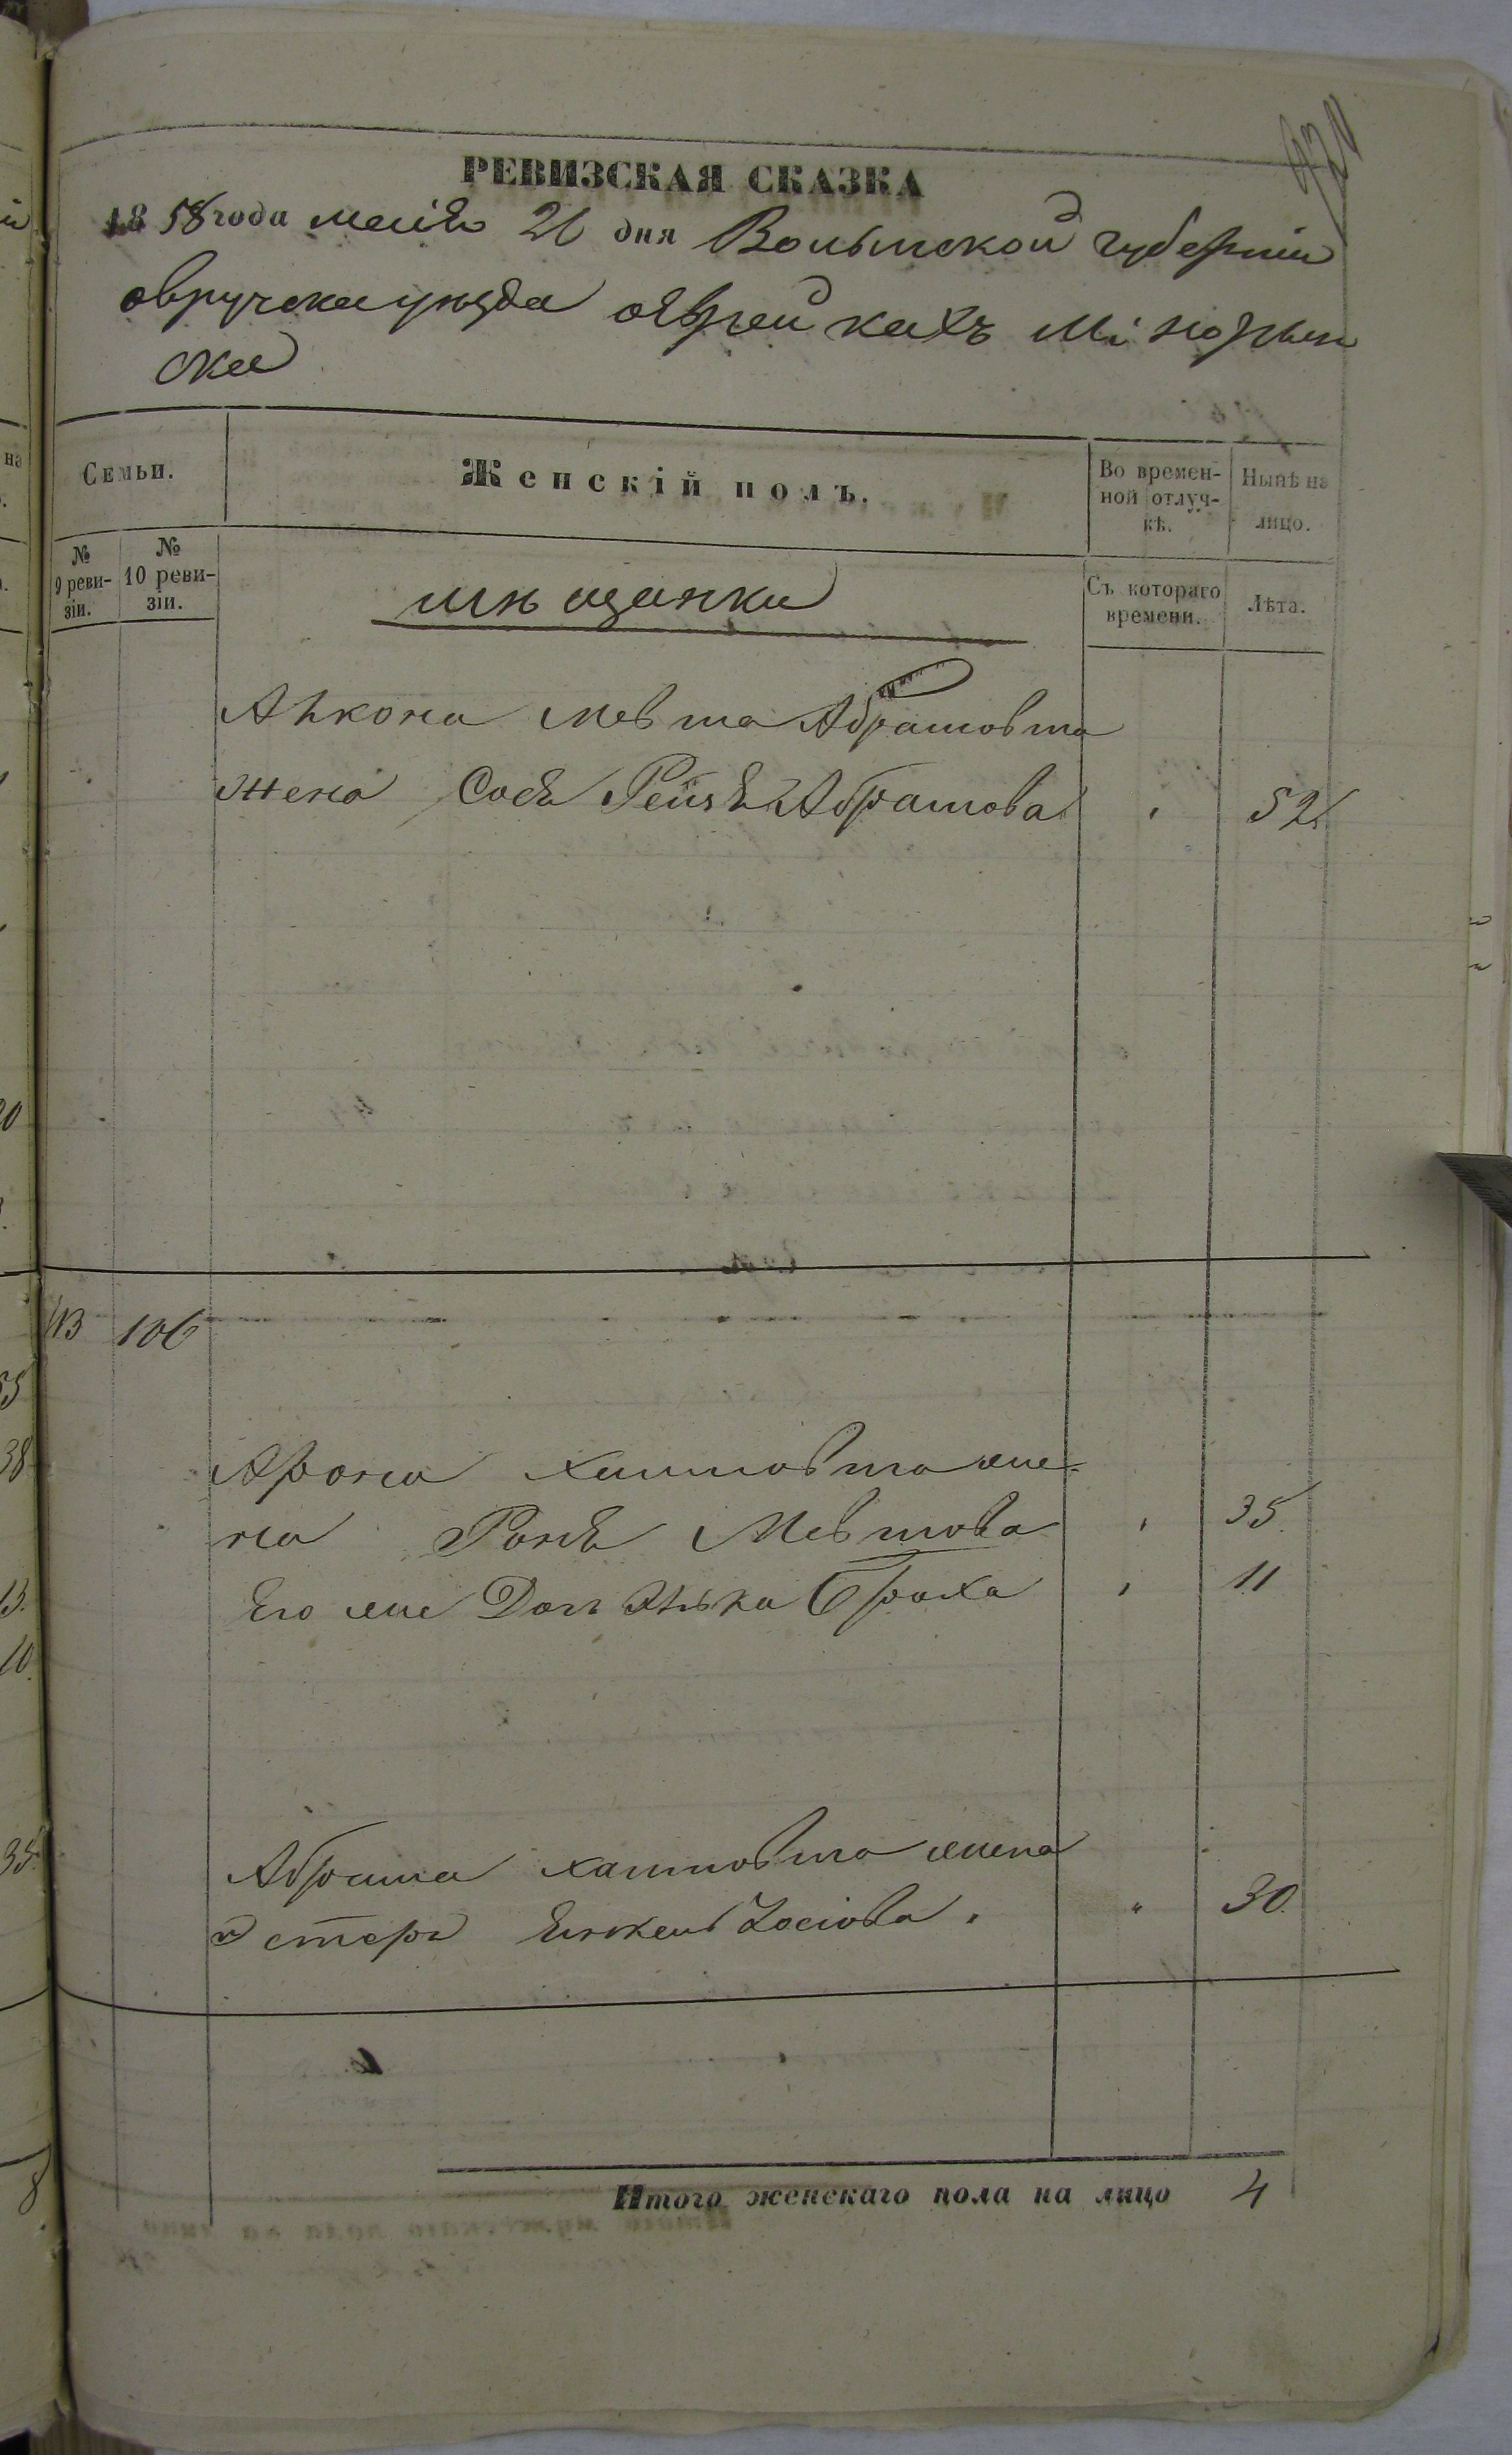 РЕВИЗСКАЯ СКАЗКА
1858 года маія 26 дня Волынской губерніи
овручска уѣзда М. Норын
ска
Семьи.
Женскій полъ.
Во времен-
ной отлуч-
кѣ.
Нынѣ на
лицо.
№
9 реви-
зіи.
№
10 реви-
зіи.
мѣщанки
Съ котораго
времени.
Лѣта.
Янкона Мевша Абрамовича
жена Сося Рейзя Абрамова 52
113 106
Арона Хаимовича же-
на Роня Мевшова 35
Его же Дочь Броха 11
Абрама Хаимовича жена
Эстеръ Іосіова 30
Итого женскаго пола на лицо 4